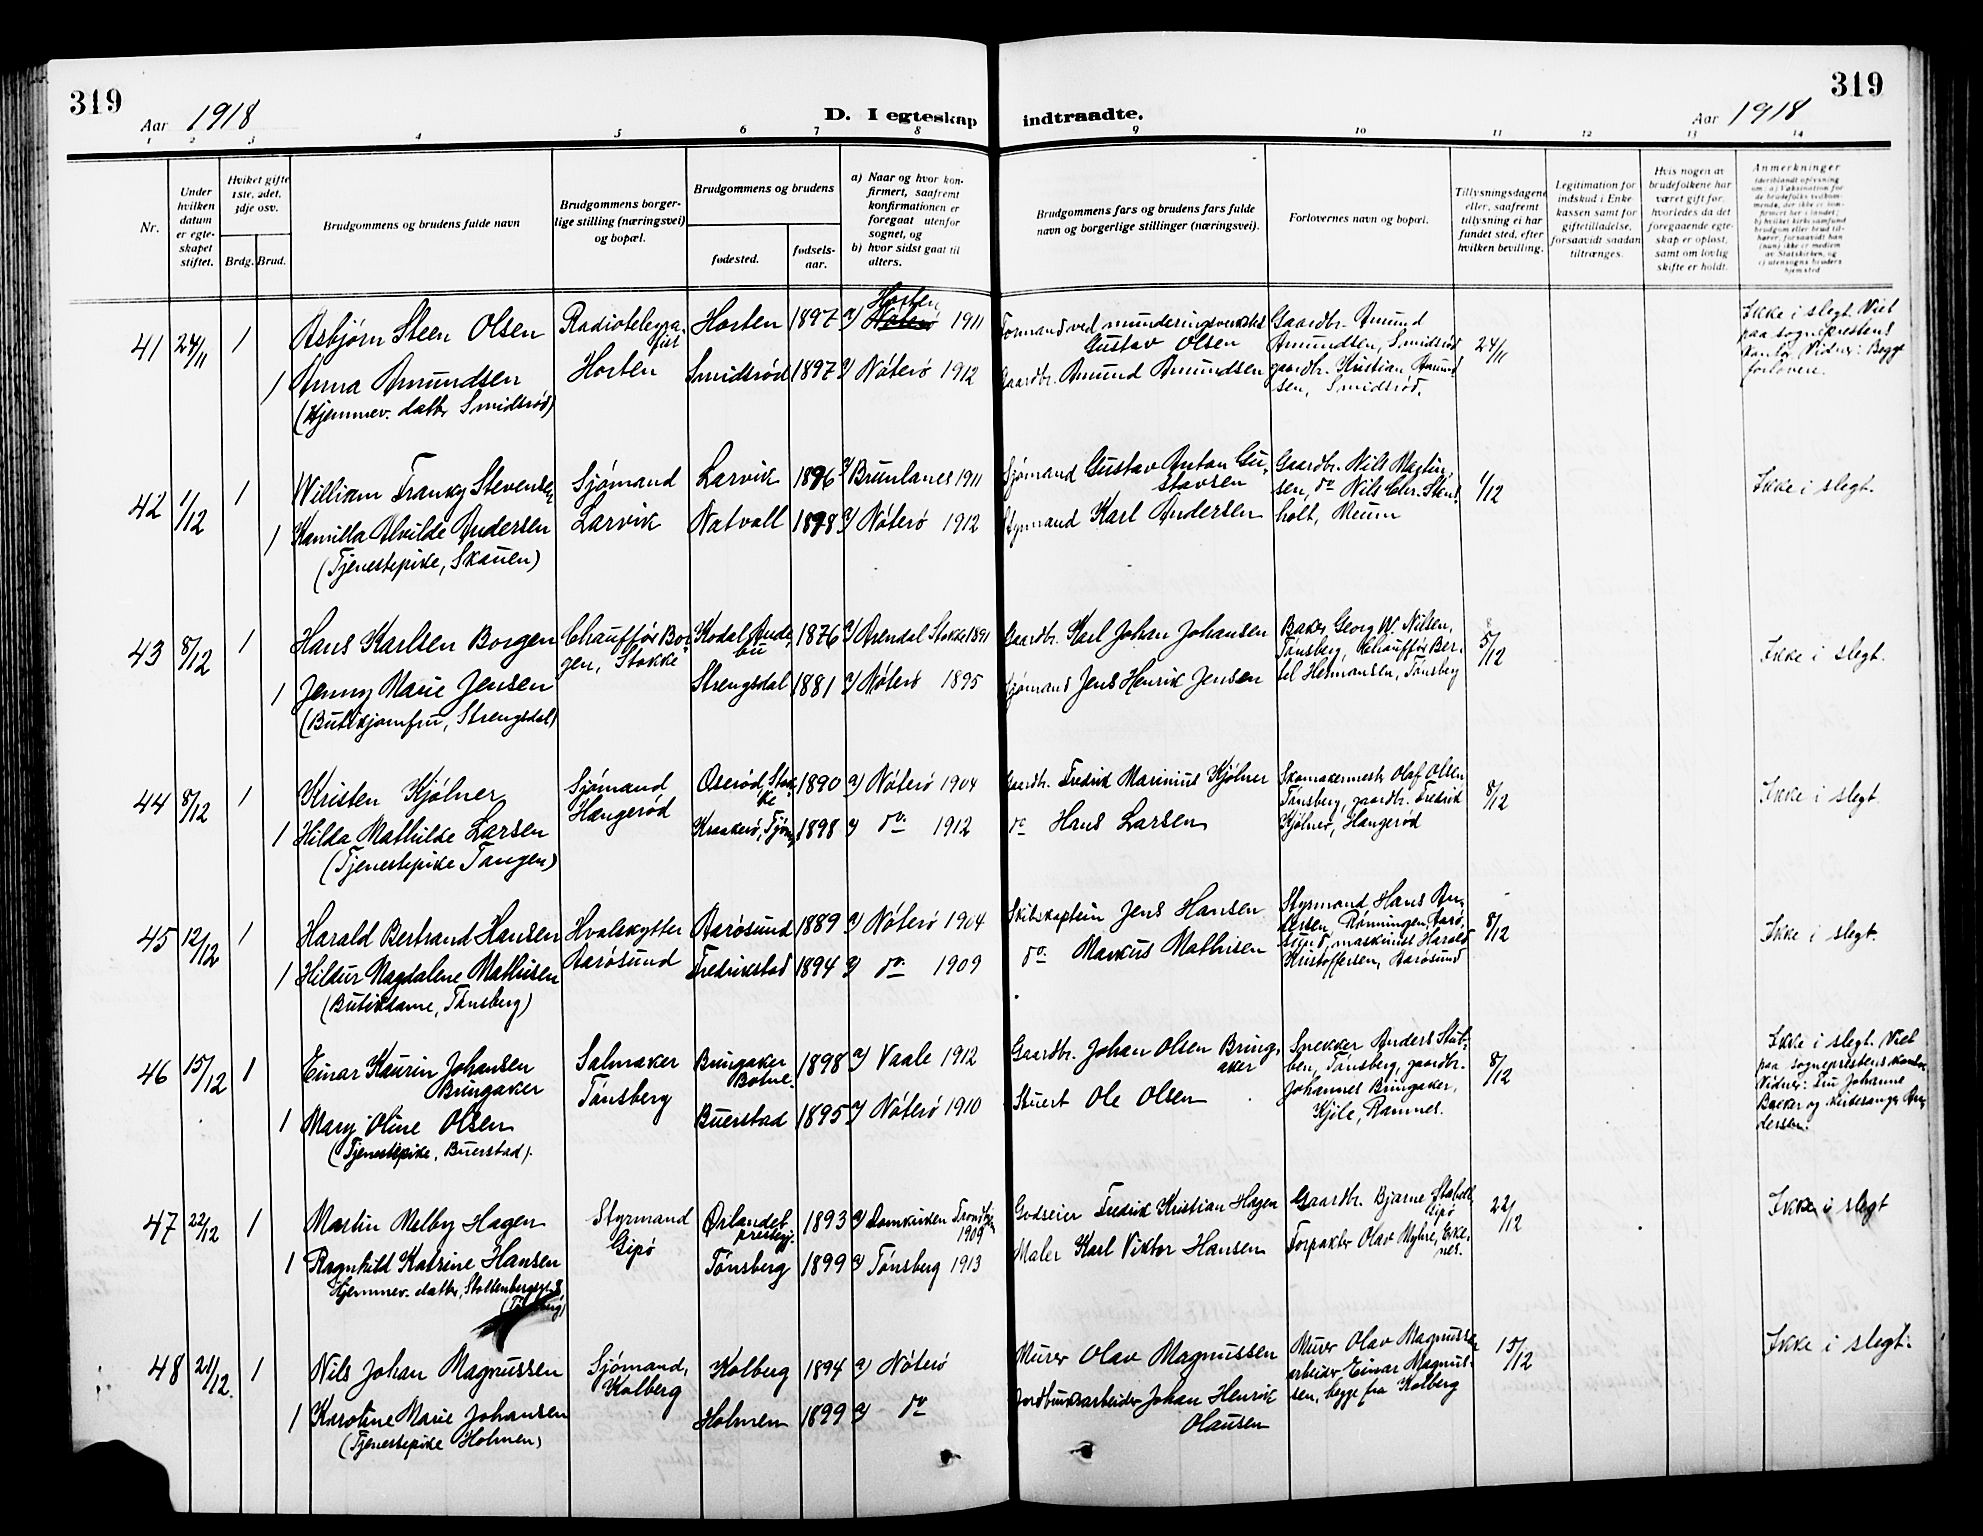 319
Aar 1918
D. I egteskap indtraadte.
Aar 1918
319
1 2 3 4 5 6 7 8 9 10 11 12 13 14
Nr.
Under
hvilken
datum
er egte-
skapet
stiftet.
Hvilket gifte
1ste, 2det,
3dje osv.
Brdg. Brud.
Brudgommens og brudens fulde navn
Brudgommens borger-
lige stilling (næringsvei)
og bopæl.
Brudgommens og brudens
fødested.
fødsels-
aar.
a) Naar og hvor kon-
firmert, saafremt
konfirmationen er
foregaat utenfor
sognet, og
b) hvor sidst gaat til
alters.
Brudgommens fars og brudens fars fulde
navn og borgerlige stillinger (næringsvei).
Forlovernes navn og bopæl.
Tillysningsdagene
eller, saafremt
tillysning ei har
fundet sted, efter
hvilken bevilling.
Legitimation for
indskud i Enke-
kassen samt for
giftetilladelse,
forsaavidt saadan
tiltrænges.
Hvis nogen av
brudefolkene har
været gift før,
hvorledes da det
foregaaende egte-
skap er opløst,
samt om lovlig
skifte er holdt.
Anmerkninger
41 24/11 1 Asbjørn Steen Olsen
1 Anna Amundsen
(Hjemmev. datter Smidsrød)
Radiotelegra-
fist
Horten
Horten 1897 a) Horten 1911
Smidsrød 1897 a) Nøterø 1912
Formand ved munderingsverkstet
Gustav Olsen
Gaardbr. Amund Amundsen
Gaardbr. Amund
Amundsen, Smidsrød
gaardbr. Kristian Amund
sen, Smidsrød.
24/11
Ikke i slegt. Viet
paa sogneprestens
kontor. Vidner: Begge
forlovere.
42 1/12 1 William Franky Stevensen
1 Kamilla Alvilde Andersen
(Tjenestepike, Skauen)
Sjømand
Larvik
Larvik 1896 a) Brunlanes 1911
Natvall 1898 a) Nøterø 1912
Sjømand Gustav Anton Gu-
stavsen
Styrmand Karl Andersen
Gaardbr. Nils Martin-
sen, do Nils Chr. Stens
holt, Meum
1/12
Ikke i slegt.
43 8/12 1 Hans Karlsen Borgen
1 Jenny Marie Jensen
(Butikjomfru, Strengsdal)
Chauffør Bor-
gen, Stokke
Kodal Ande-
bu 1876 a) Arendal Stokke 1891
Strengsdal 1881 a) Nøterø 1895
Gaardbr. Karl Johan Johansen
Sjømand Jens Henrik Jensen
Baker Georg W. Nilsen,
Tønsberg, Chauffør Ber-
tel Hermansen, Tønsberg
5/12
Ikke i slegt.
44 8/12 1 Kristen Kjølner
1 Hilda Mathilde Larsen
(Tjenestepike Tangen)
Sjømand
Hangerød
Oserød, Stok-
ke 1890 a) Nøterø 1904
Kraakerø, Tjømø 1898 a) do. 1912
Gaardbr. Fredrik Marinius Kjølner
do Hans Larsen
Skomakermestr Olaf Olsen
Tønsberg, gaardbr. Fredrik
Kjølner, Hangerød
8/12
Ikke i slegt.
45 12/12 1 Harald Bertrand Hansen
1 Hildur Magdalene Mathisen
(Butikdame, Tønsberg)
Hvalskytter
Aarøsund
Aarøsund 1889 a) Nøterø 1904
Fredrikstad 1894 a) do. 1909
Skibskaptein Jens Hansen
do. Markus Mathisen
Styrmand Hans An-
dersen, Rønningen, Aarø-
sund, maskinist Harald
Kristoffersen, Aarøsund
8/12
Ikke i slegt.
46 15/12 1 Einar Kaurin Johansen
Bringaker
1 Mary Oline Olsen
(Tjenestepike, Buerstad).
Salmaker
Tønsberg
Bringaker
Botne. 1898 a) Vaale 1912
Buerstad 1895 a) Nøterø 1910
Gaardbr. Johan Olsen Bring-
aker
Stuert Ole Olsen
Snekker Anders Stub-
ben, Tønsberg, gaardbr.
Johannes Bringaker,
Kjile, Ramnes.
8/12
Ikke i slegt. Viet
paa sogneprestens kontor
Vidner: Fru Johanne
Backer og kirkesanger An-
dersen.
47 22/12 1 Martin Melby Hagen
1 Ragnhild Katrine Hansen
Hjemmev. datter, Stoltenbergsgt.
(Tønsberg)
Styrmand
Gipø
Ørlandet
prestegj. 1893 a) Domkirken Trondhjem
1909
Tønsberg 1899 a) Tønsberg 1913
Godseier Fredrik Kristian Hagen
Maler Karl Viktor Hansen
Gaardbr. Bjarne
Gipø
Forpakter Olav Myhre, Eke-
nes.
22/12
Ikke i slegt
48 21/12. 1 Nils Johan Magnussen
1 Karoline Marie Johansen
(Tjenestepike Holmen)
Sjømand,
Kolberg
Kolberg 1894 a) Nøterø
Holmen 1899 a) do
Murer Olav Magnussen
Jordbruksarbeider Johan Henrik
Olausen
Murer Olav Magnussen
arbeider Einar Magnus-
sen, begge fra Kolberg
15/12
Ikke i slegt.